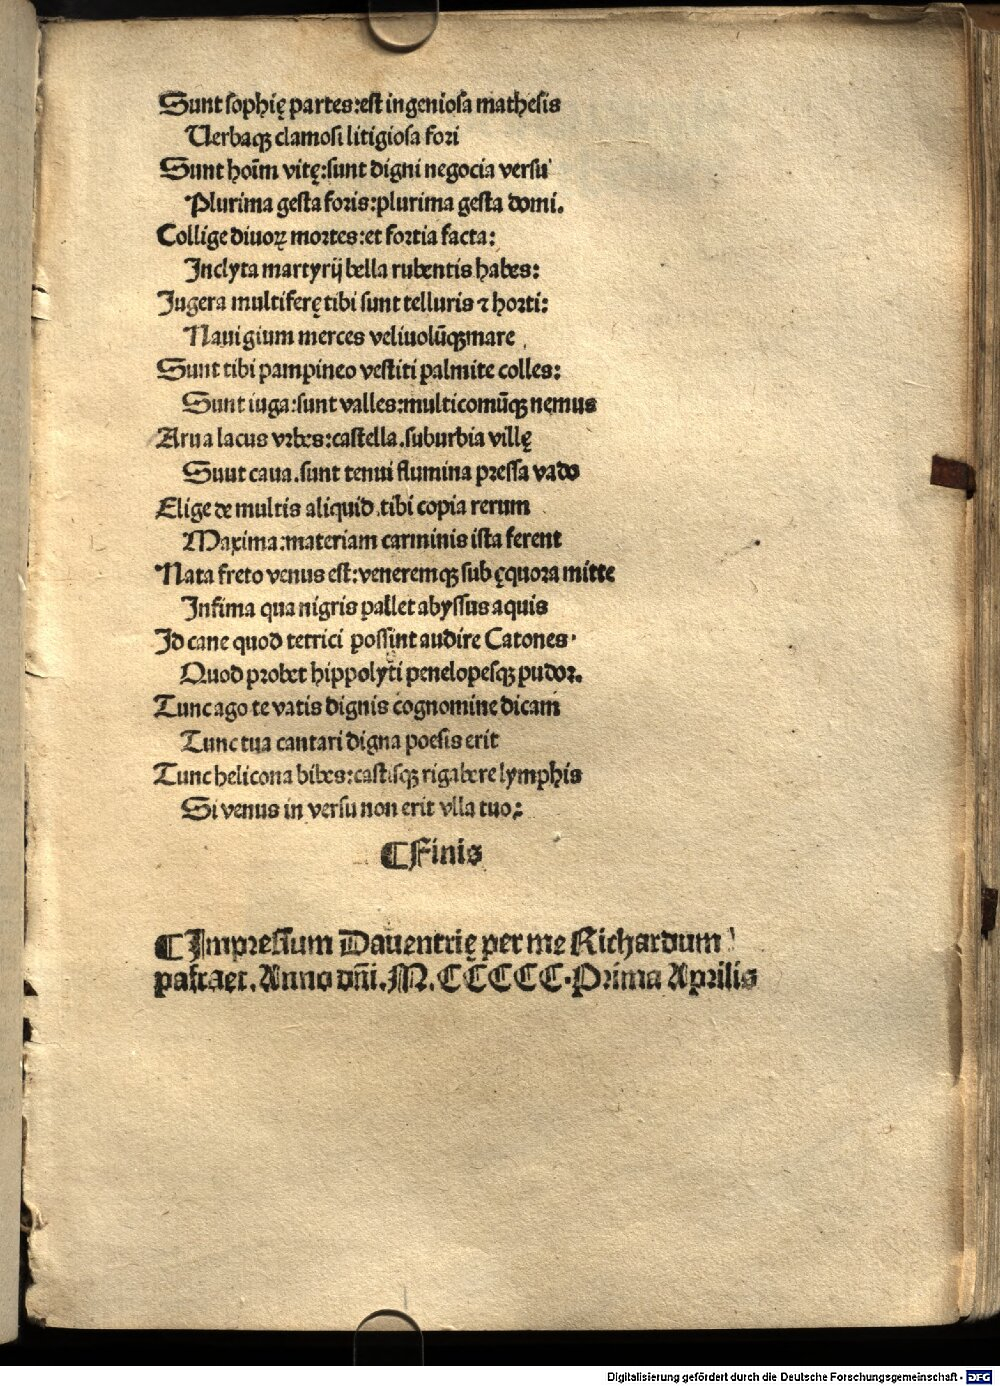 Sunt sophię partes:est ingeniosa mathesis
Uerbaqꝫ clamosi litigiosa fori
Sunt hoīm vitę:sunt digni negocia versu
Plurima gesta foris:plurima gesta domi.
Collige diuoꝝ mortes:et fortia facta:
Inclyta martyrij bella rubentis habes:
Jugera multiferę tibi sunt telluris ⁊ horti:
Nauigium merces veliuolūqꝫ mare
Sunt tibi pampineo vestiti palmite colles:
Sunt iuga:sunt valles:multicomūqꝫ nemus
Arua lacus vrbes:castella.suburbia villę
Suut caua.sunt tenui flumina pressa vado
Elige de multis aliquid.tibi copia rerum
Maxima:materiam carminis ista ferent
Nata freto venus est:veneremqꝫ sub ęquora mitte
Infima qua nigris pallet abyssus aquis
Id cane quod tetrici possint audire Catones·
Quod probet hippolyti penelopesqꝫ pudor.
Tunc ago te vatis dignis cognomine dicam
Tunc tua cantari digna poesis erit
Tunc helicona bibes:castisqꝫ rigabere lymphis
Si venus in versu non erit vlla tuo:
¶ Finis
¶ Impressum Dauentrię per me Richardum
pafraet. Anno dn̄i. M. CCCCC. Prima Aprilis
Digitalisierung gefördert durch die Deutsche Forschungsgemeinschaft - DFG